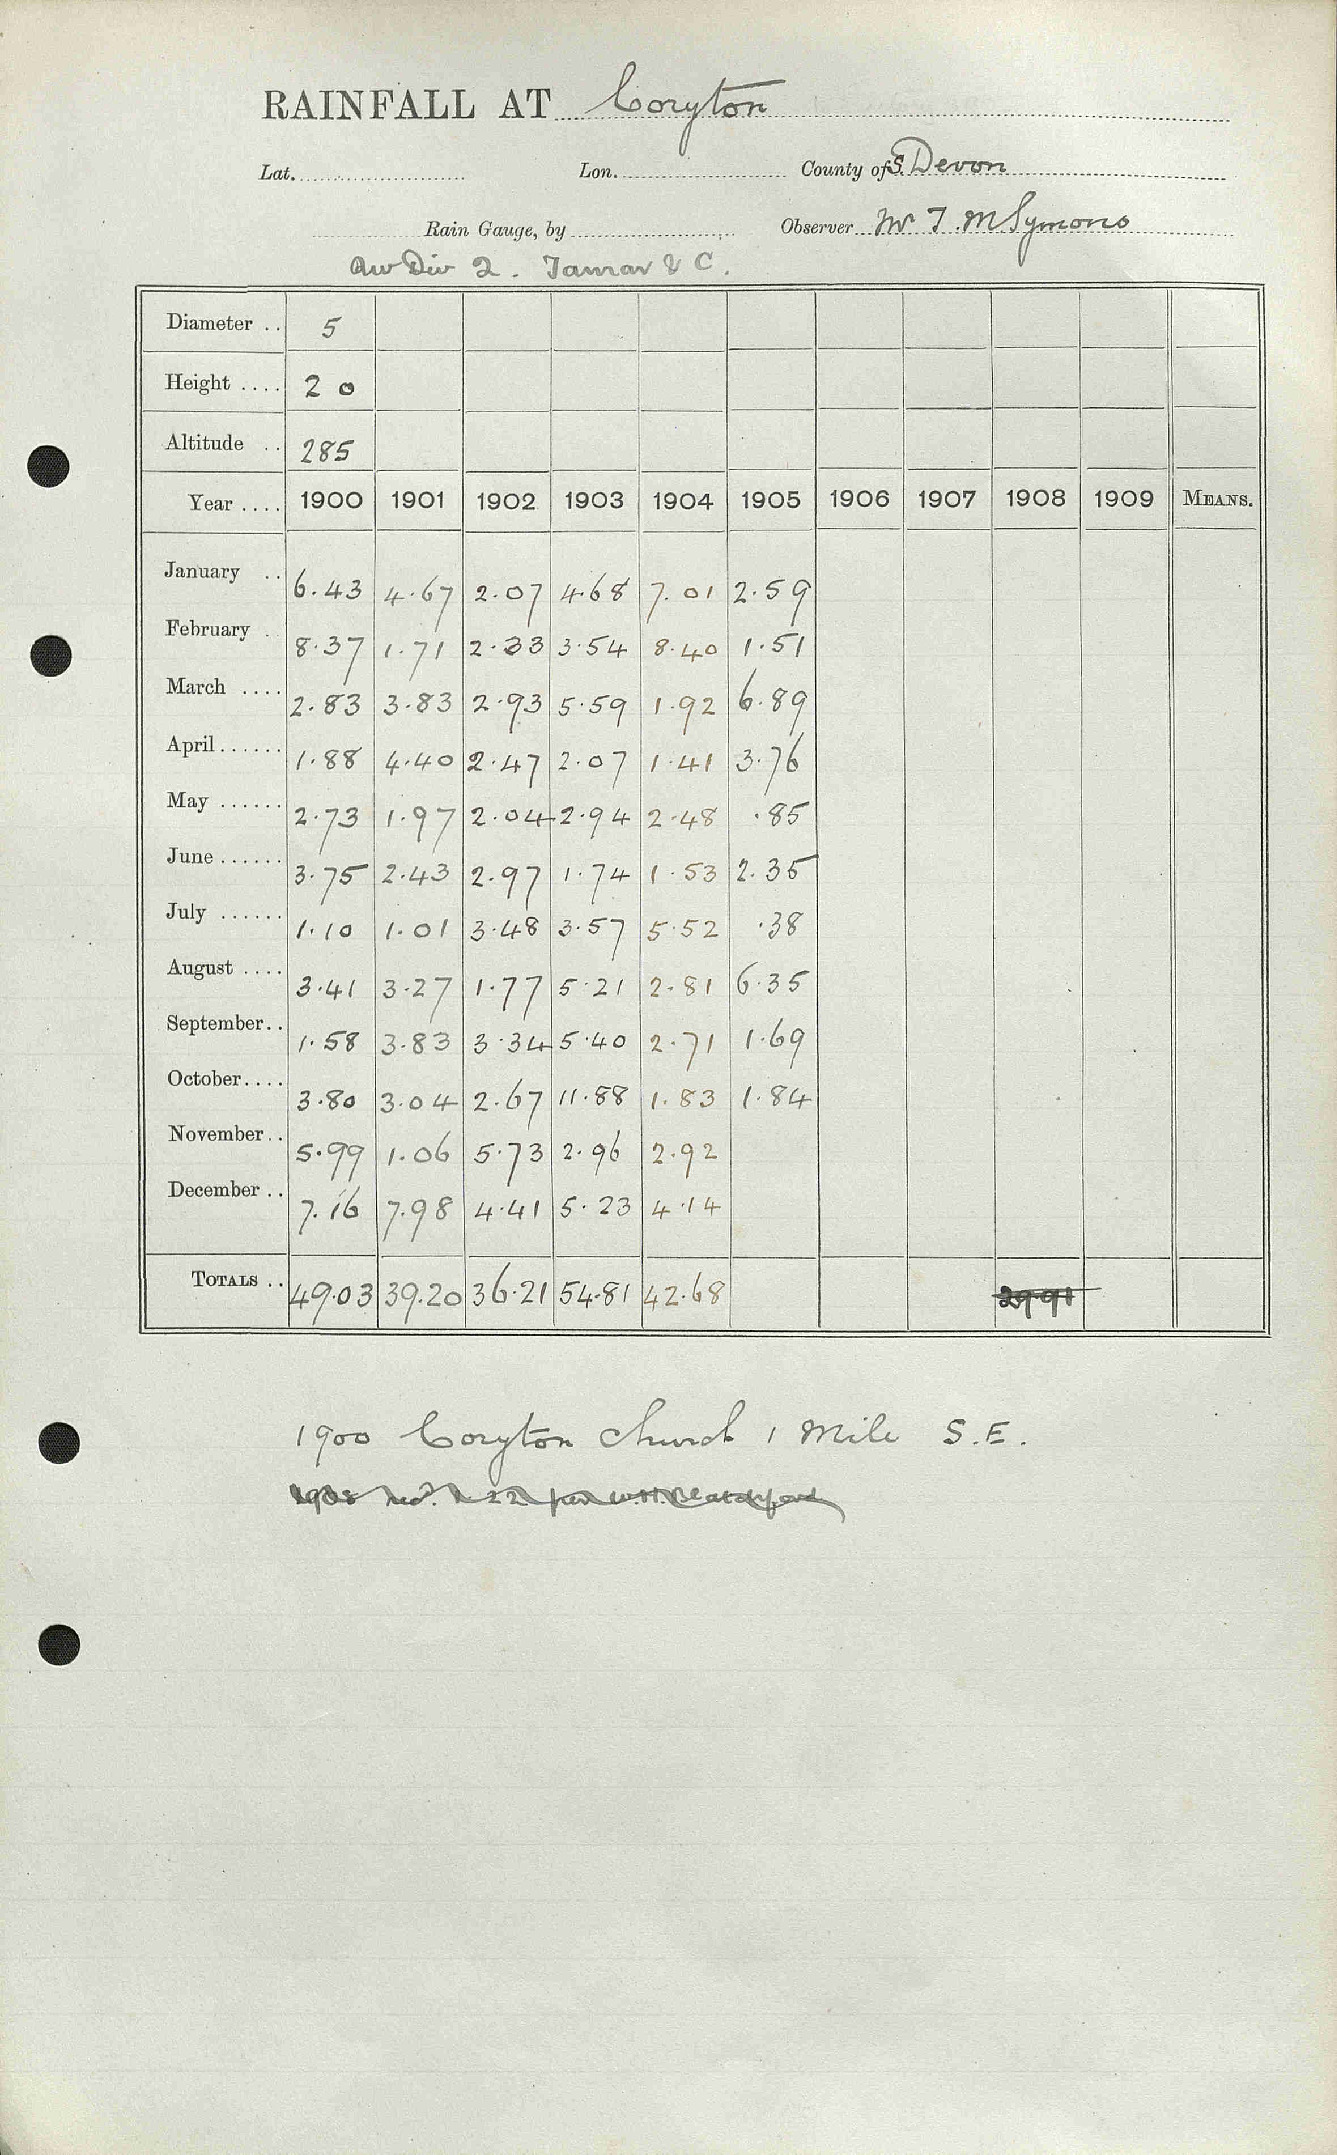 RAINFALL AT Coryton
Lat. Lon. County of S. Devon
Rain Gauge, by Observer Mr T. M Symons
Riv Div 2. Tamar & C.
Diameter .. 5
Height .... 2 0
Altitude .. 285
Year .... 1900 1901 1902 1903 1904 1905 1906 1907 1908 1909 MEANS.
January .. 6.43 4.67 2.07 4.68 7.01 2.59
February . 8.37 1.71 2.33 3.54 8.40 1.51
March .... 2.83 3.83 2.93 5.59 1.92 6.89
April...... 1.88 4.40 2.47 2.07 1.41 3.76
May ...... 2.73 1.97 2.04 2.94 2.48 .85
June ...... 3.75 2.43 2.97 1.74 1.53 2.35
July ...... 1.10 1.01 3.48 3.57 5.52 .38
August .... 3.41 3.27 1.77 5.21 2.81 6.35
September.. 1.58 3.83 3.34 5.40 2.71 1.69
October.... 3.80 3.04 2.67 11.88 1.83 1.84
November.. 5.99 1.06 5.73 2.96 2.92
December .. 7.16 7.98 4.41 5.23 4.14
TOTALS .. 49.03 39.20 36.21 54.81 42.68 29.91
1900 Coryton Church 1 Mile S.E.
1908 22 W.H. Blatchford